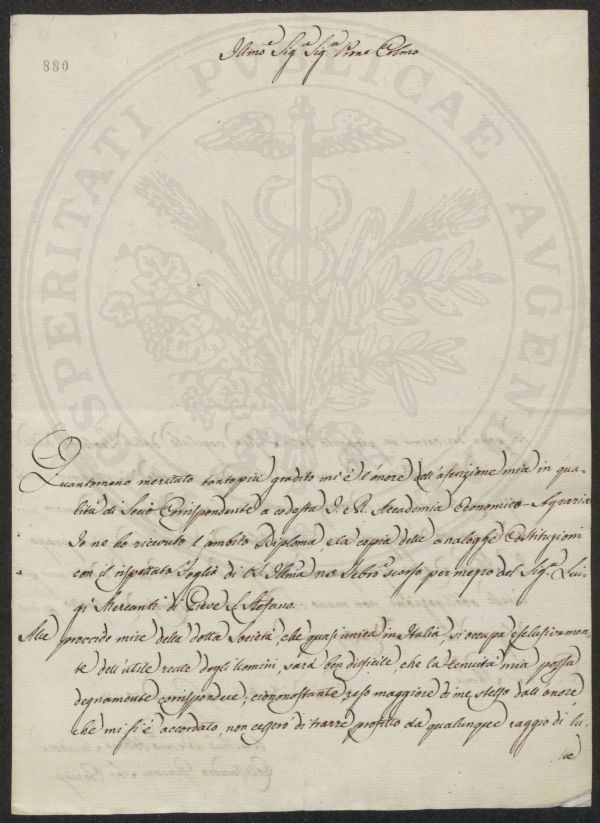 880
Illmo Sigr Sigr Prne Colmo
PROSPERITATI PUBLICAE AUGENDAE
Quantomeno meritato tantopiù gradito mi è l'onore dell'ascrizione mia in qua-
lità di Socio Corrispondente a codesta I. e R. Accademia Economico-Agraria
Io ne ho ricevuto l'ambito Diploma e la copia delle analoghe Costituzioni
con il rispettato Foglio di VS. Illma Febro scorso per mezzo del Sigr Lui-
gi Mercanti di Pieve S. Stefano.
Alle mire della dotta Società, che quasi unica in Italia, si occupa esclusivamen-
te dell'utile reale degli Uomini, sarà ben difficile, che la tenuità mia possa
degnamente corrispondere; ciononostante, reso maggiore di me stesso dall'onore
che mi si è accordato, non cesserò di trarre profitto da qualunque raggio di lu-
ce